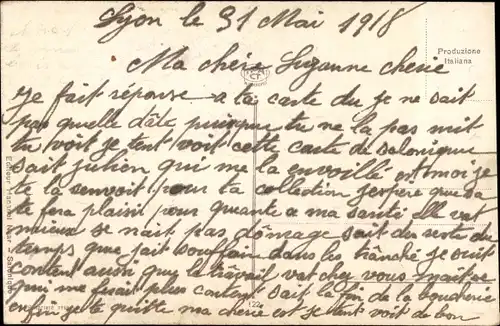 Lyon le 31 Mai 1918
Ma chère Suzanne cherie
Produzione
Italiana
je fait réponse a ta carte du je ne sait
pas quelle dâte puisque tu ne la pas mit
tu voit je tent voit cette carte de salonique
sait julien qui me la envoillé et moi je
te la renvoit pour ta collection jespère que sa
te fera plaisir pour quante a ma santé elle vat
mieux se nait pas dômage sait du reste du
temps que jait souffair dans les tranché je suit
content aussi que le travail vat chez vous mait se
qui me ferait plus content sait la fin de la boucherie
enfin je te quitte ma cherie est je tent voit de bon
122